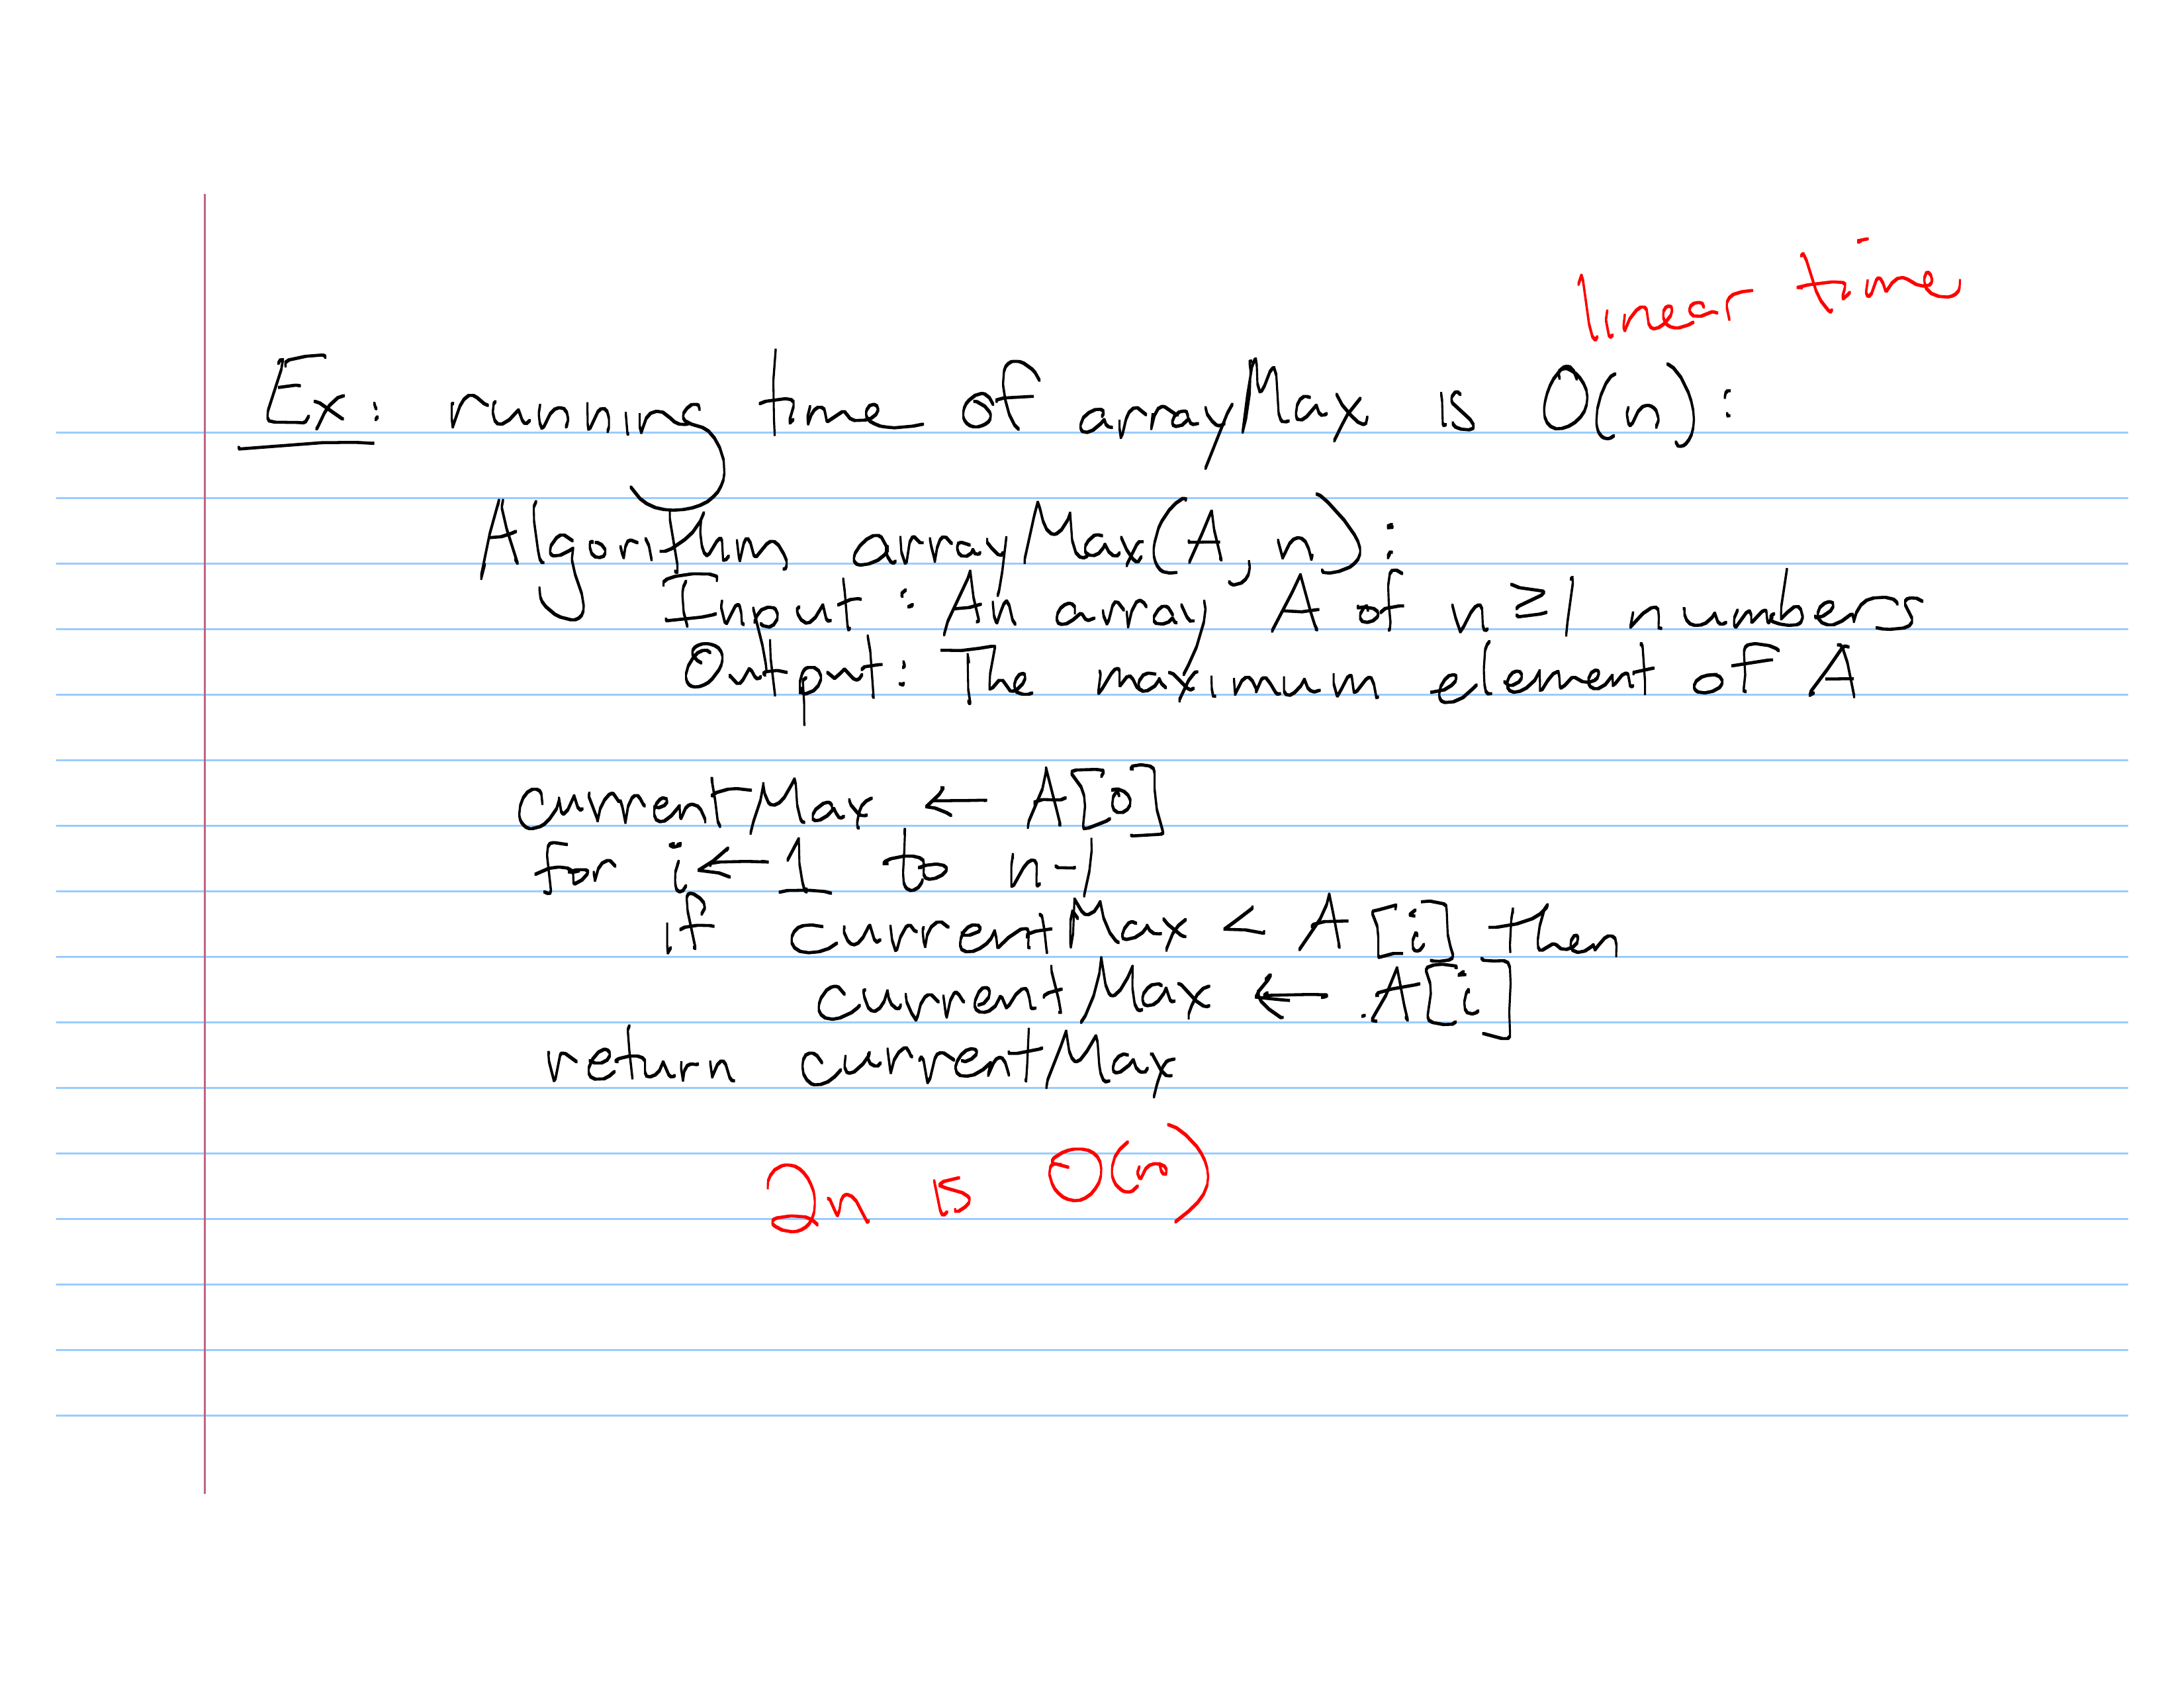 linear time
Ex: running time of arrayMax is O(n):
Algorithm arrayMax(A,n):
Input: An array A of n ≥ 1 numbers
Output: The maximum element of A
currentMax ← A[0]
for i ← 1 to n-1
if currentMax < A[i] then
currentMax ← A[i]
return currentMax
2n is O(n)